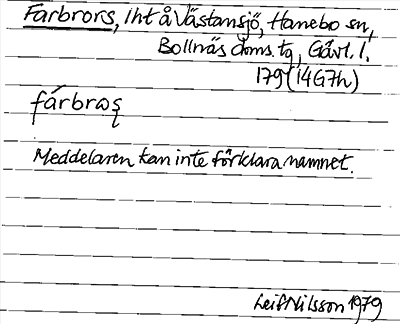 Farbrors, lht å Västansjö, Hanebo sn,
Bollnäs doms. tg, Gävl. l.
179 (14G7h)
fárbros̨
Meddelaren kan inte förklara namnet.
Leif Nilsson 1979